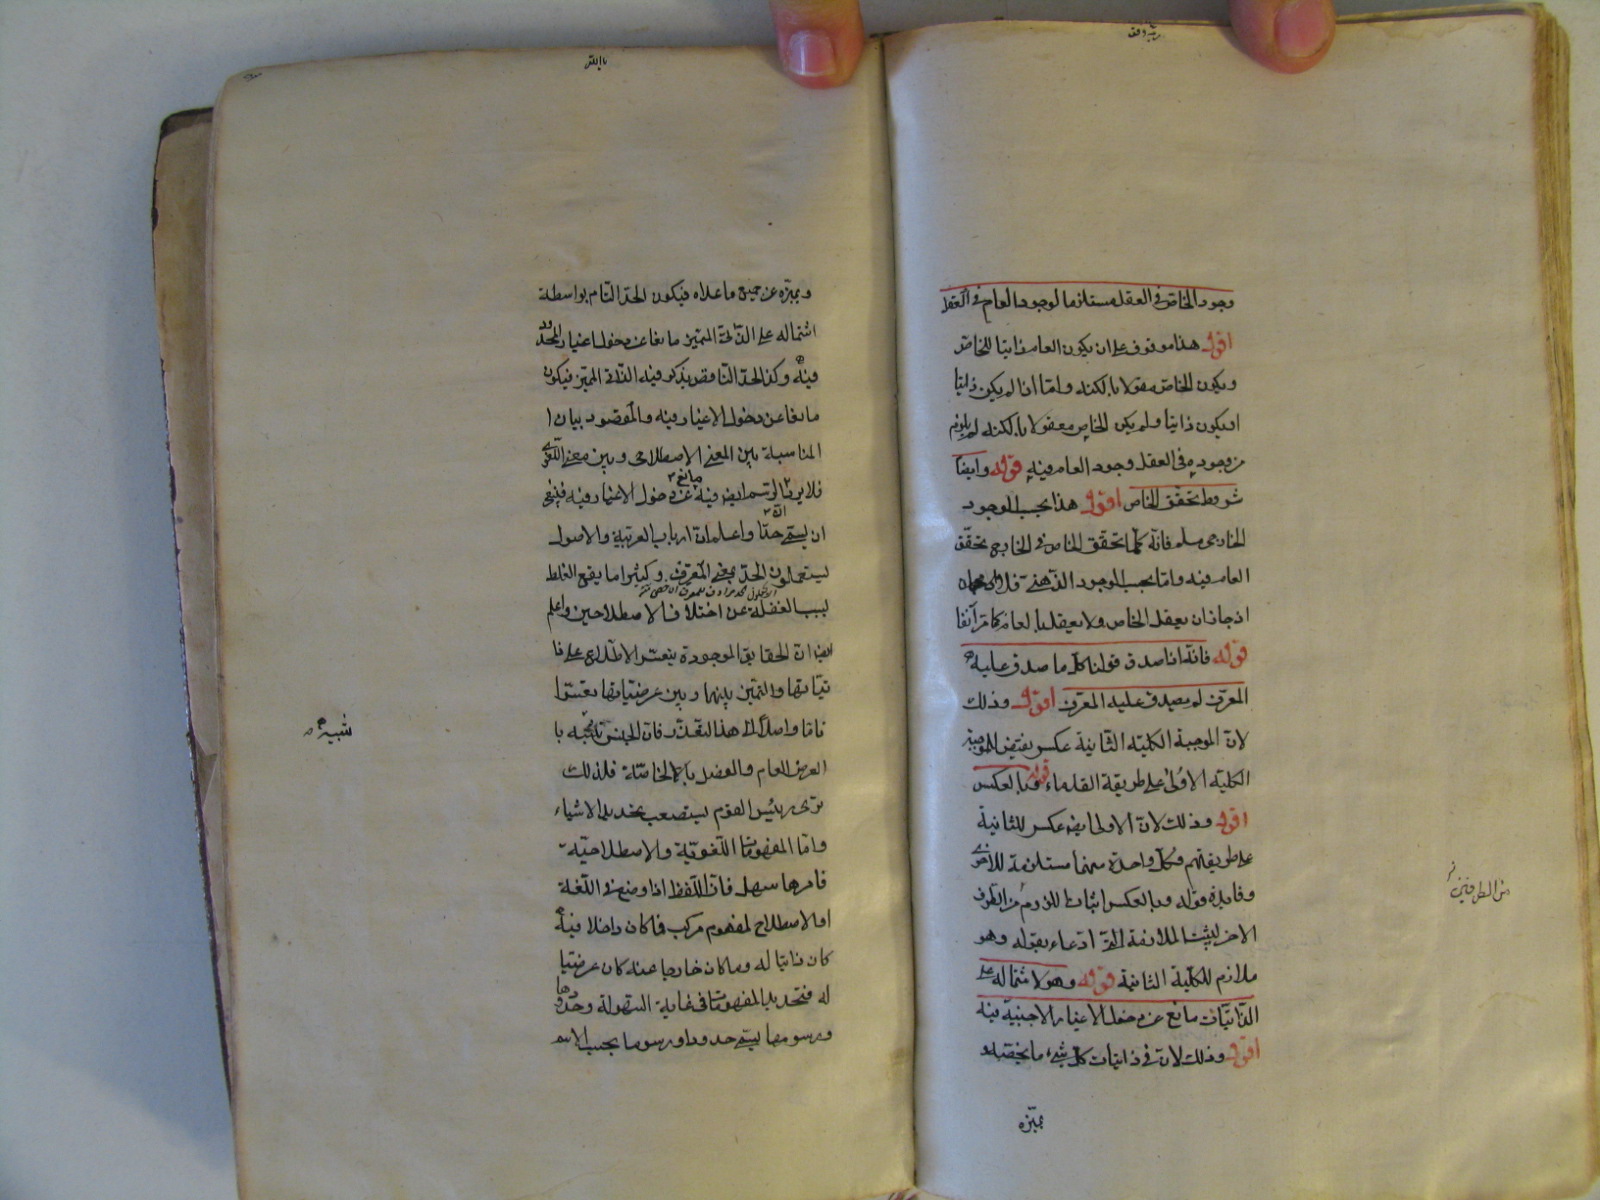 وجود الخاص فى العقل مستلزما لوجود العام فى العقل
اقول هذا موقوف على ان يكون العام ذاتيا للخاص
ويكون الخاص معقولا بالكنه واما اذا لم يكن ذاتيا
او يكون ذاتيا ولم يكن الخاص معقولا بالكنه لم يلزم
من وجوده فى العقل وجود العام فيه قوله وايضا
شروط تحقق الخاص اقول هذا بحسب الوجود
الخارجى مسلم فانه كلما تحقق الخاص فى الخارج تحقق
العام فيه واما بحسب الوجود الذهنى فلا
اذ جاز ان يعقل الخاص ولا يعقل العام كما مر آنفا
قوله فانه اذا صدق قولنا كل ما صدق عليه
المعرف لم يصدق عليه المعرف اقول وذلك
لان الموجبة الكلية الثانية عكس نقيض الموجبة
الكلية الاولى على طريقة القدماء قوله وبالعكس
اقول وذلك لان الاولى ايضا عكس للثانية
على طريقتهم وكل واحدة منهما مستلزمة للاخرى
وفايدة قوله وبالعكس اثبات اللزوم من الطرف
الاخر ليثبت الملازمة التى ادعاه بقوله وهو
ملازم للكلية الثانية قوله وهو لاشتماله على
الذاتيات مانع عن دخول الاغيار الاجنبية فيه
اقول وذلك لان فى ذاتيات كل شئ ما يخصه
يميزه
من الطرفين
ويميزه عن جميع ما عداه فيكون الحد التام بواسطة
اشتماله على الذاتى المميز مانعا عن دخول اغيار المحدود
فيه وكذا الحد الناقص يذكر فيه الذاتى المميز فيكون
مانعا عن دخول الاغيار فيه والمقصود بيان
المناسبة بين المعنى الاصطلاحى وبين معنى اللغوى
فلا يرد ان الرسم ايضا فيه مانع عن دخول الاغيار فيه فينبغى
ان يسمى حدا واعلم ان ارباب العربية والاصول
يستعملون الحد بمعنى المعرف وكثيرا ما يقع الغلط
بسبب الغفلة عن اختلاف الاصطلاحين واعلم
ايضا ان الحقايق الموجودة يتعسر الاطلاع على ذا
تياتها والتميز بينها وبين عرضياتها تعسرا
تاما واصلا الى هذا التعذر فان الجنس يشتبه با
العرض العام والفصل بالخاصة فلذلك
ترى رئيس القوم يستصعب تحديد الاشياء
واما المفهومات اللغوية والاصطلاحية
فامرها سهل فان اللفظ اذا وضع فى اللغة
او الاصطلاح لمفهوم مركب فما كان داخلا فيه
كان ذاتيا له وما كان خارجا عنه كان عرضيا
له فتحديد المفهومات فى غاية السهولة وحدودها
ورسومها يسمى حدودا ورسوما بحسب الاسم